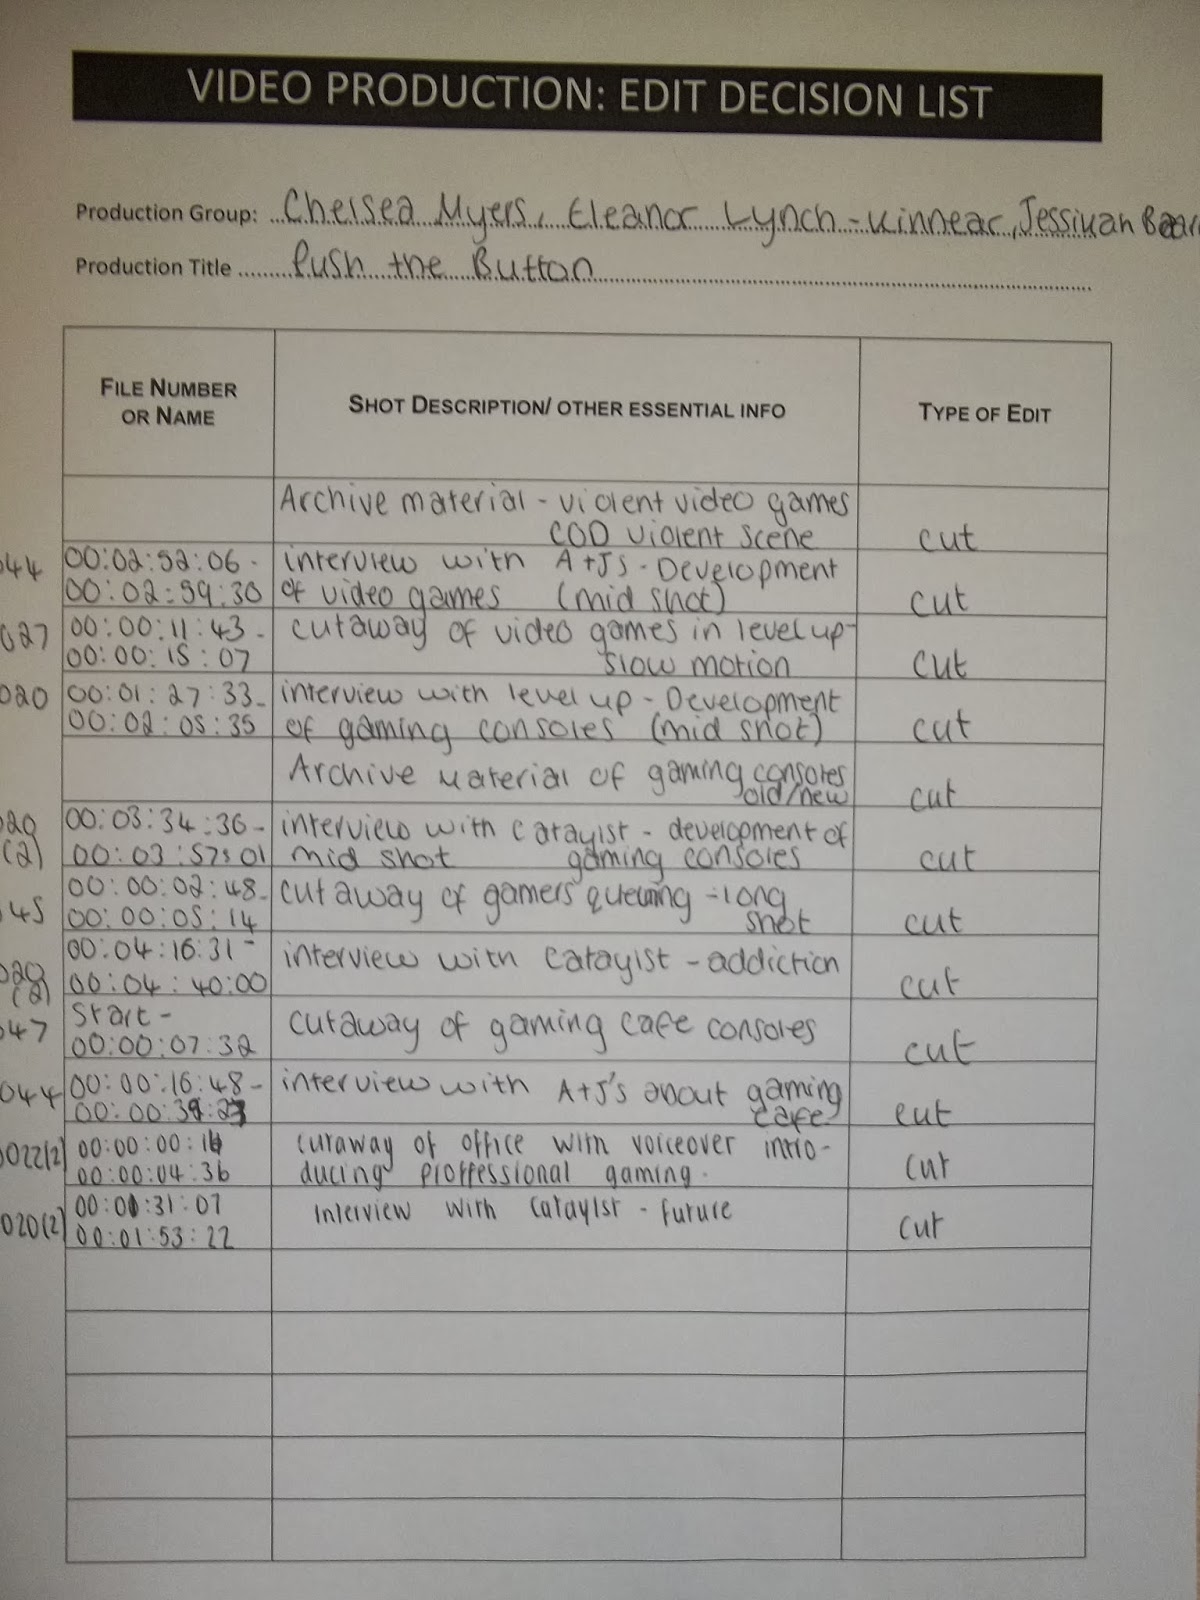 VIDEO PRODUCTION: EDIT DECISION LIST
Production Group: Chelsea Myers, Eleanor Lynch-Kinnear, Jessikah
Production Title Push the Button
FILE NUMBER OR NAME
SHOT DESCRIPTION/ OTHER ESSENTIAL INFO
TYPE OF EDIT
Archive material - violent video games
COD violent scene
cut
44
00:02:52:06 -
00:02:59:30
interview with A+J's - Development
of video games (mid shot)
cut
027
00:00:11:43 -
00:00:15:07
cutaway of video games in level up -
slow motion
cut
020
00:01:27:33 -
00:02:05:35
interview with level up - Development
of gaming consoles (mid shot)
cut
Archive material of gaming consoles
old/new
cut
020
(2)
00:03:34:36 -
00:03:57:01
interview with Cataylst - development of
mid shot gaming consoles
cut
45
00:00:02:48 -
00:00:05:14
cutaway of gamers queuing - long
shot
cut
020
(2)
00:04:16:31 -
00:04:40:00
interview with Cataylst - addiction
cut
047
Start -
00:00:07:32
cutaway of gaming cafe consoles
cut
044
00:00:16:48 -
interview with A+J's about gaming
cafe
cut
0022(2)
00:00:04:36
cutaway of office with voiceover intro-
ducing proffessional gaming.
cut
020(2)
00:01:53:22
Interview with Cataylst - future
cut